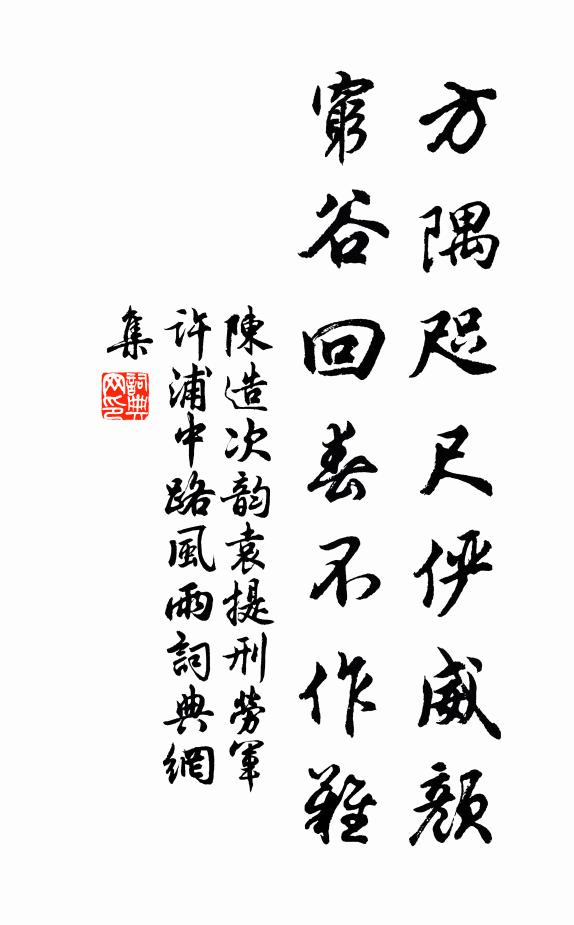 方隅咫尺俨威顔
窮谷回春不作難
陳造次韵袁提刑勞軍
許浦中路風雨詞典網
集
詞典
网印